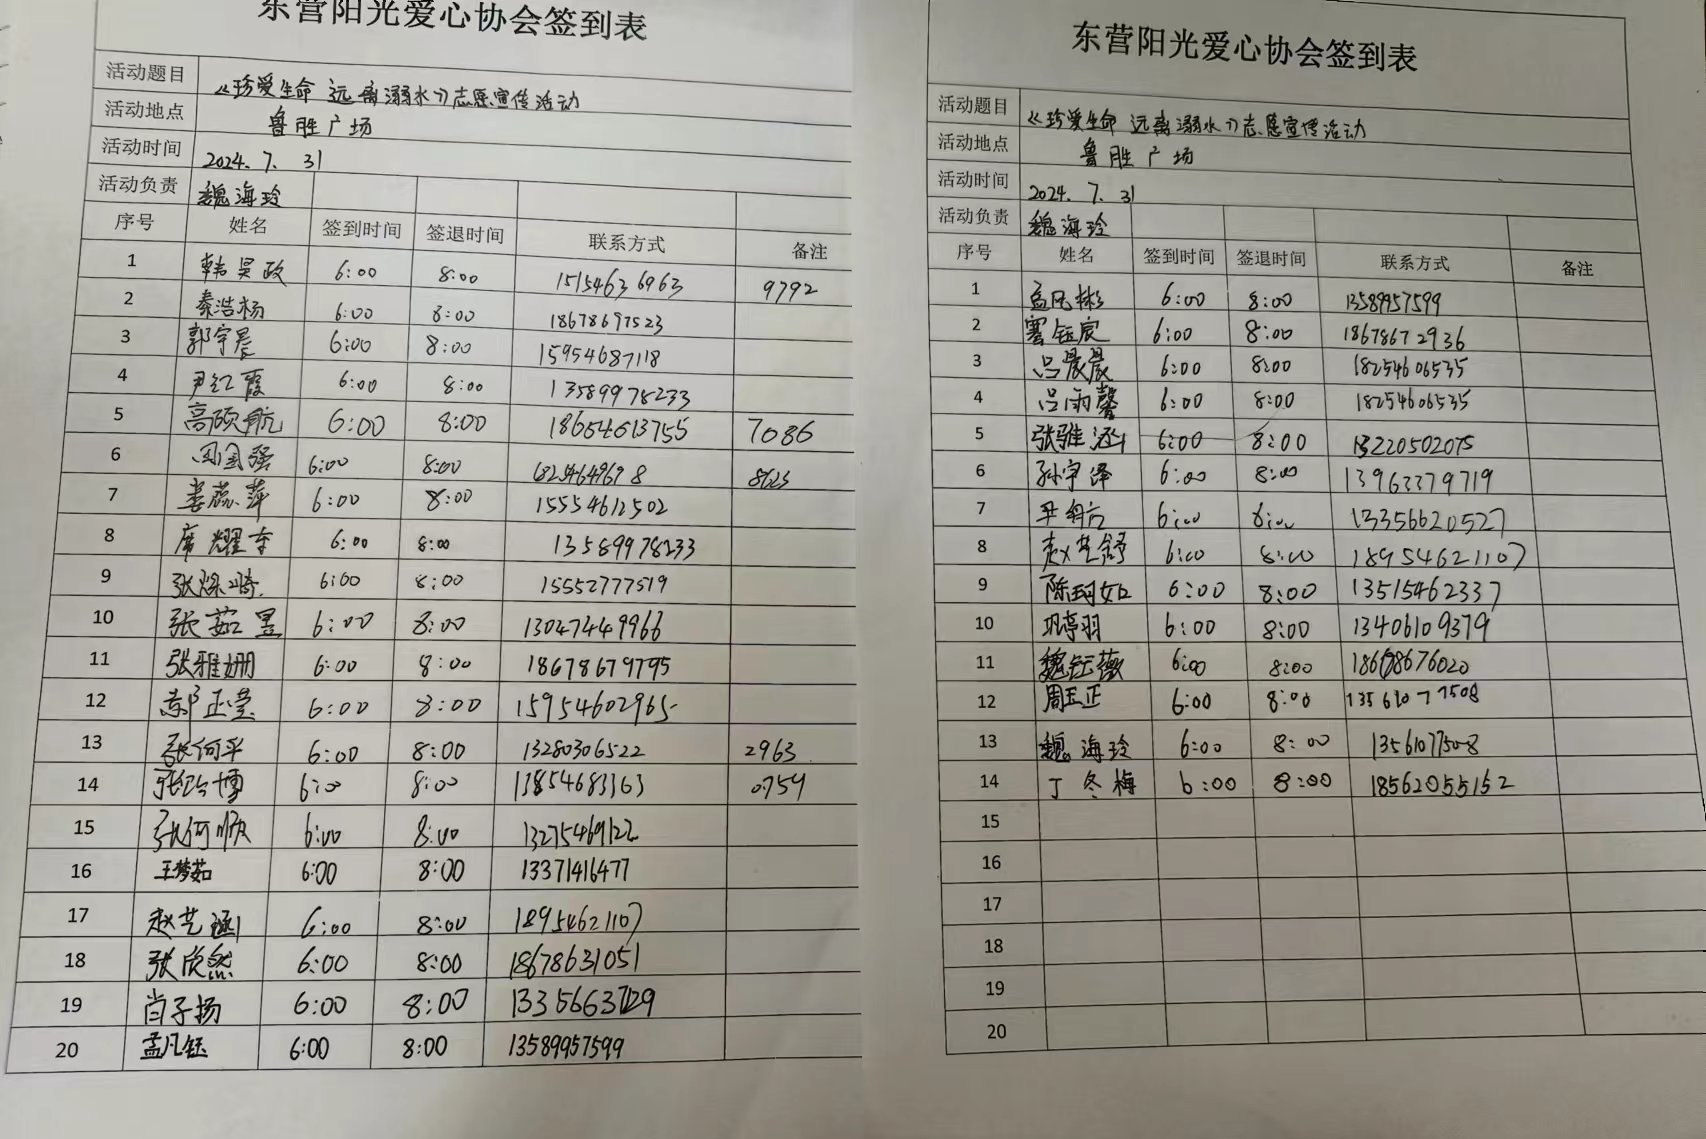 东营阳光爱心协会签到表
活动题目 《珍爱生命 远离溺水》志愿宣传活动
活动地点 鲁胜广场
活动时间 2024.7.31
活动负责 魏海玲
序号 姓名 签到时间 签退时间 联系方式 备注
1 韩昊政 6:00 8:00 15154636963 9792
2 秦浩杨 6:00 8:00 18678697523
3 郭宇晨 6:00 8:00 15954687118
4 尹红霞 6:00 8:00 13589978233
5 高硕航 6:00 8:00 18654613755 7086
6 周国强 6:00 8:00
7 娄蕊萍 6:00 8:00 15554612502
8 席耀东 6:00 8:00 13589978233
9 6:00 8:00 15552777519
10 张茹昱 6:00 8:00 13047449966
11 张雅姗 6:00 8:00 18678679795
12 正莹 6:00 8:00 15954602965
13 张何平 6:00 8:00 13280306522 2963
14 6:00 8:00 13854683363 0754
15 张何顺 6:00 8:00 13275469122
16 王梦茹 6:00 8:00 13371416477
17 赵艺涵 6:00 8:00 18954621107
18 张欣然 6:00 8:00 18678631051
19 肖子扬 6:00 8:00
20 孟凡钰 6:00 8:00 13589957599
东营阳光爱心协会签到表
活动题目 《珍爱生命 远离溺水》志愿宣传活动
活动地点 鲁胜广场
活动时间 2024.7.31
活动负责 魏海玲
序号 姓名 签到时间 签退时间 联系方式 备注
1 孟凡彬 6:00 8:00 13589957599
2 钰宸 6:00 8:00 18678672936
3 吕晨晨 6:00 8:00 18254606535
4 吕雨馨 6:00 8:00 18254606535
5 张雅涵 6:00 8:00 13220502075
6 孙宇泽 6:00 8:00 13963379719
7 6:00 8:00 13356620527
8 赵艺舒 6:00 8:00 18954621107
9 陈珂如 6:00 8:00 13515462337
10 巩亭羽 6:00 8:00 13406109379
11 魏钰薇 6:00 8:00 18678676020
12 周玉正 6:00 8:00 13561077508
13 魏海玲 6:00 8:00 13561077508
14 丁冬梅 6:00 8:00 18562055152
15
16
17
18
19
20